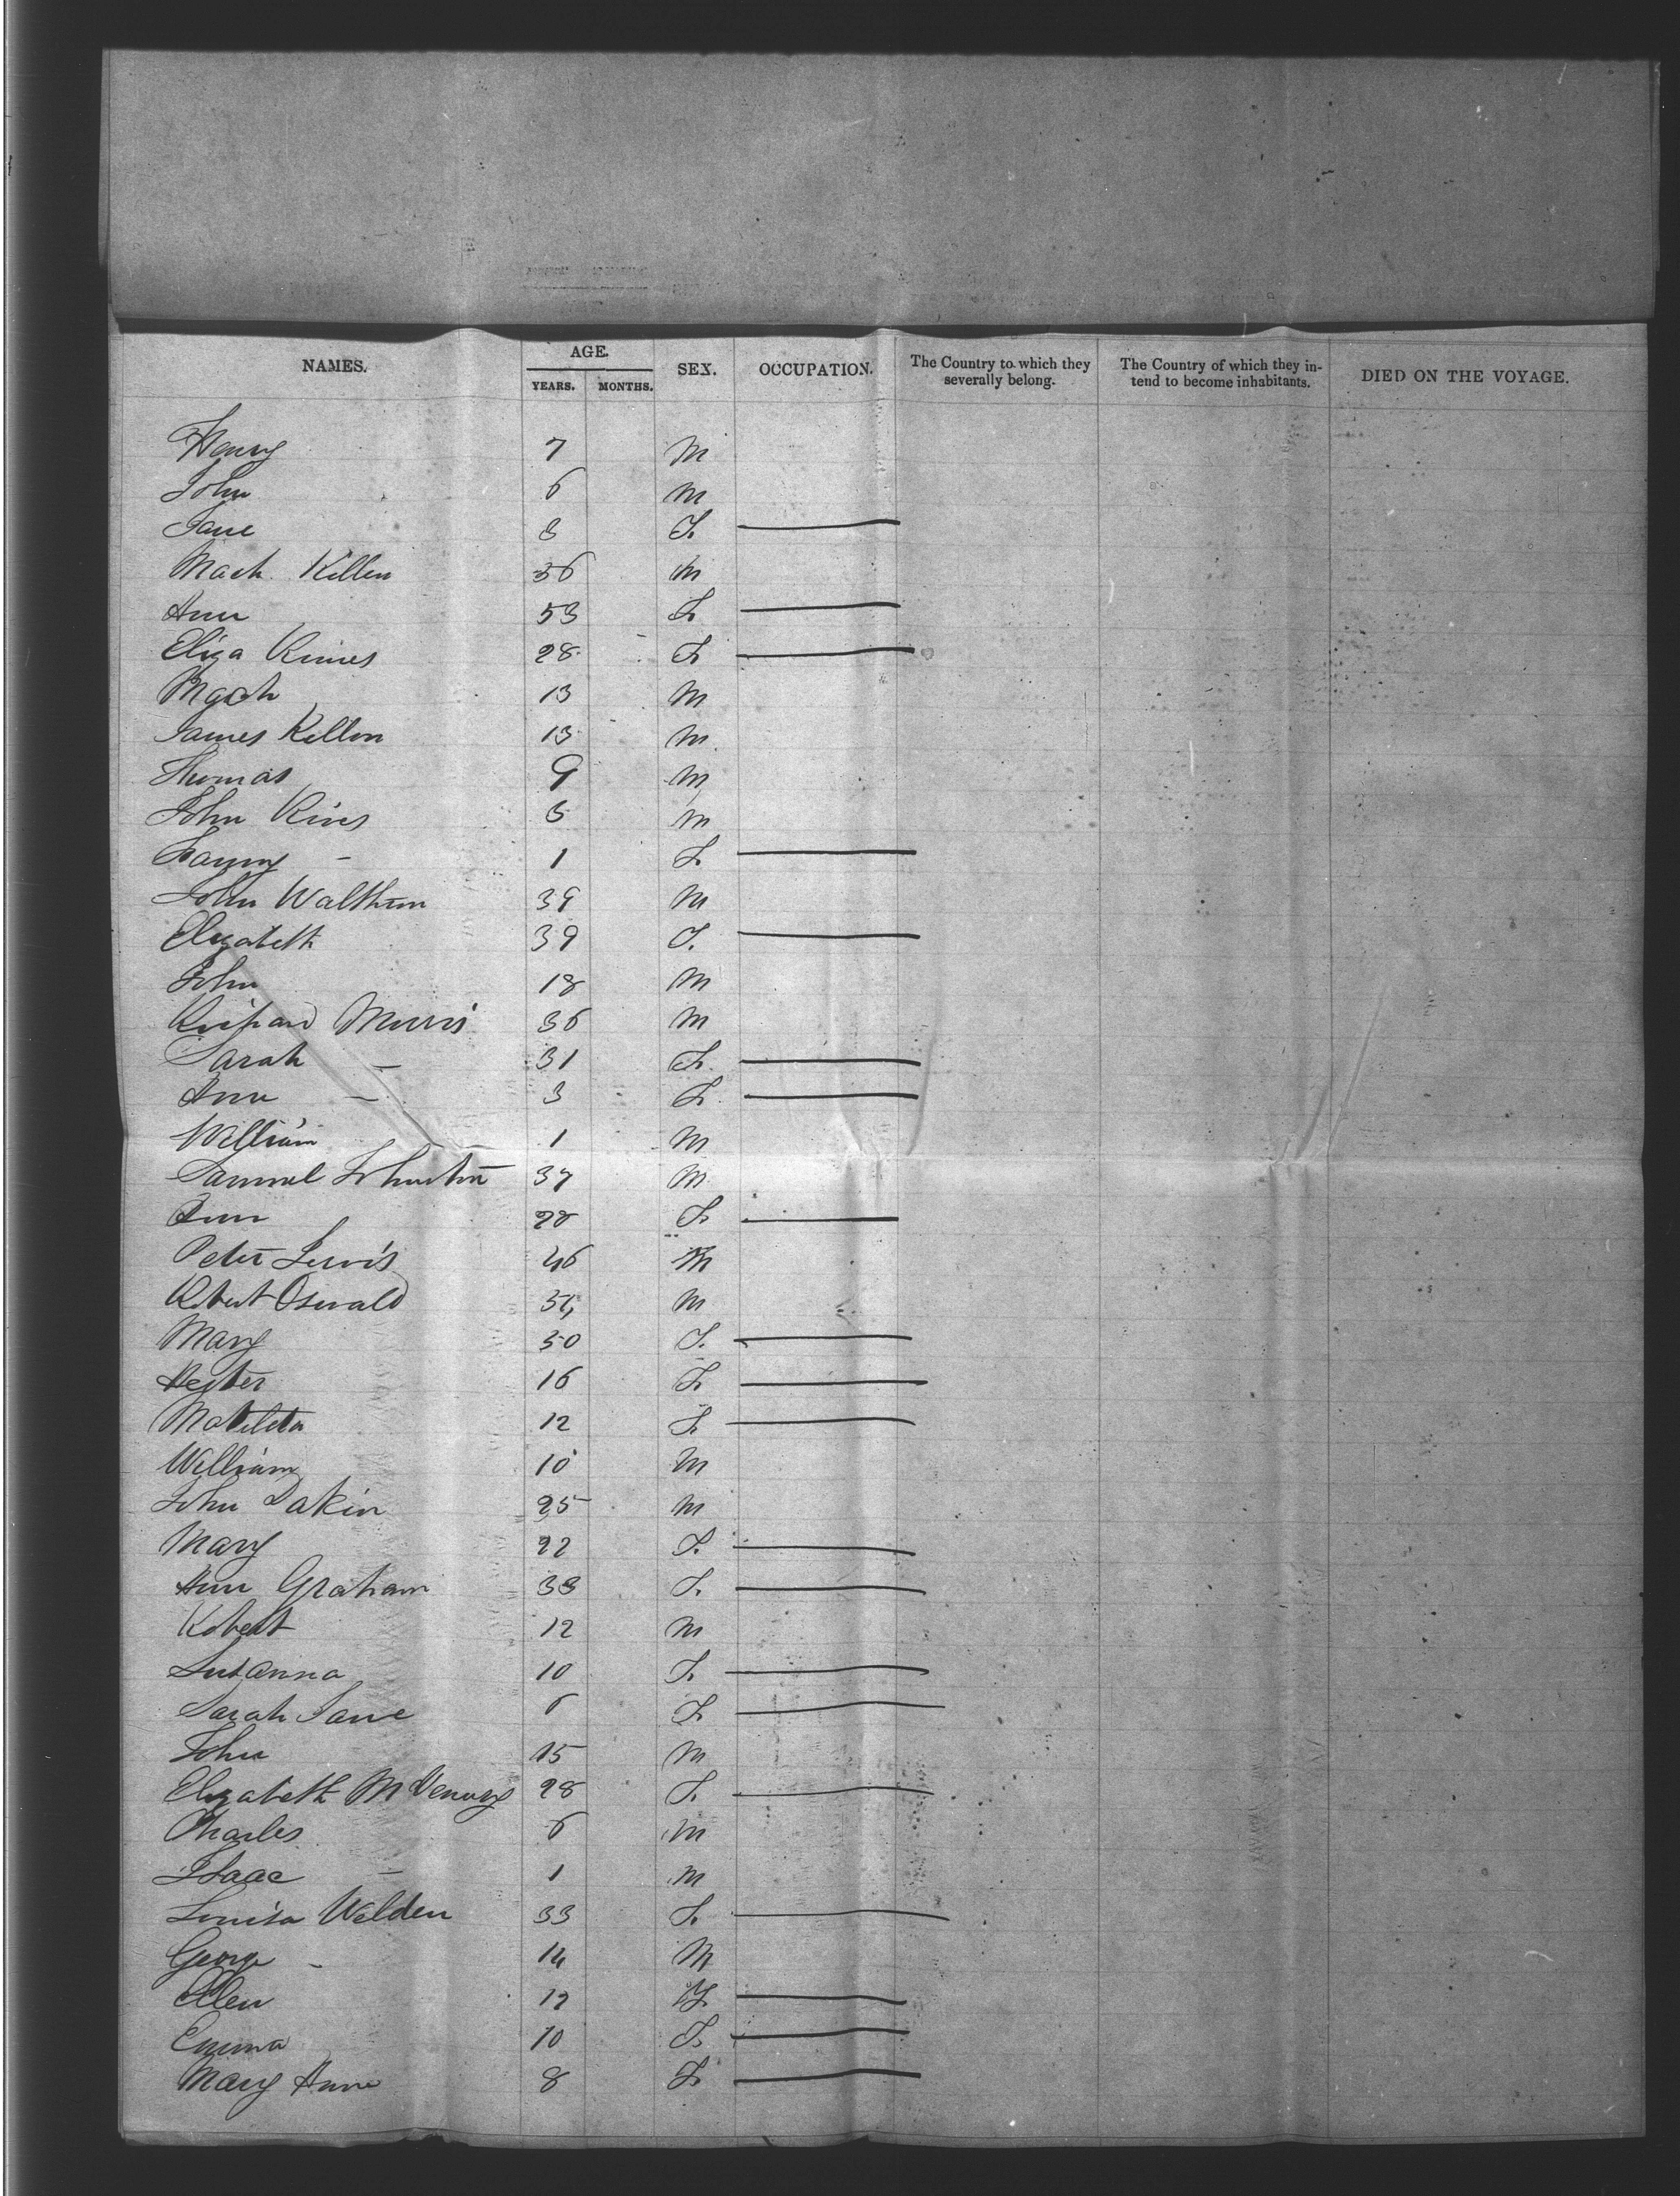 NAMES. AGE. SEX. OCCUPATION. The Country to which they severally belong. The Country of which they intend to become inhabitants. DIED ON THE VOYAGE.
YEARS. MONTHS.
Henry 7 M
John 6 M
Jane 3 F.
Mach. Killen 36 M
Ann 53 F.
Eliza Rimes 28 F.
Mach 13 M
James Killen 13 M
Thomas 9 M
John Rives M
Fanny - 1 F.
John Walthem 39 M
Elizabeth 39 F.
John 18 M
Richard Morris 36 M
Sarah - 31 F.
Ann - 3 F.
William 1 M
Samuel Johnston 37 M
Ann 28 F.
Peter Lewis 46 M
Robert Oswald M
Mary 30 F.
Hester 16 F.
Matilda 12 F.
William 10 M
John Dakin 25 M
Mary 22 F.
Ann Graham 33 F.
Robert 12 M
Susanna 10 F.
Sarah Jane 6 F.
John 15 M
Elizabeth 28 F.
Charles 6 M
Isaac - 1 M
Louisa Welden 33 F.
George - 14 M
Ellen 12 F.
Emma 10 F.
Mary Anne 8 F.